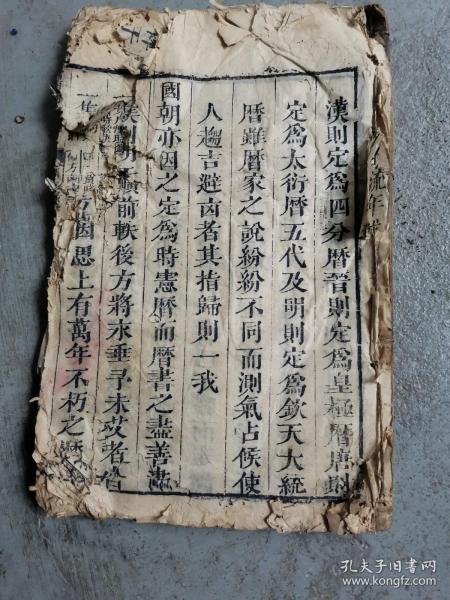 漢則定為四分曆晉則定為皇極曆唐則
定為太衍曆五代及明則定為欽天大統
曆雖曆家之說紛紛不同而測氣占候使
人趨吉避凶者其指歸則一我
國朝亦因之定為時憲曆而曆書之盡善盡
前軼後方將永垂于未艾者
因思上有萬年不朽之
流年
孔夫子旧书网
www.kongfz.com